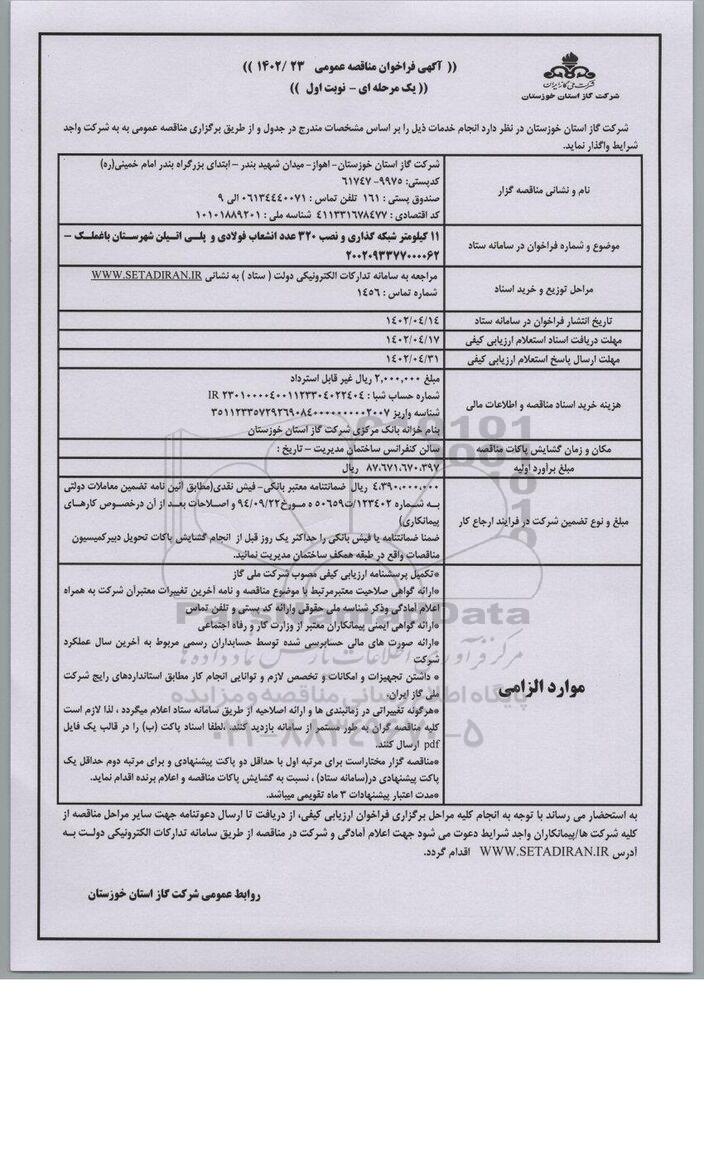 (( آگهی فراخوان مناقصه عمومی ۲۳ /۱۴۰۲ ))
(( یک مرحله ای – نوبت اول ))
شرکت ملی گاز ایران
شرکت گاز استان خوزستان
شرکت گاز استان خوزستان در نظر دارد انجام خدمات ذیل را بر اساس مشخصات مندرج در جدول و از طریق برگزاری مناقصه عمومی به به شرکت واجد
شرایط واگذار نماید.
نام و نشانی مناقصه گزار
شرکت گاز استان خوزستان- اهواز- میدان شهید بندر – ابتدای بزرگراه بندر امام خمینی(ره)
کدپستی: ۹۹۷۵- ۶۱۷۴۷
صندوق پستی : ۱۶۱ تلفن تماس : ۰۶۱۳۴۴۴۰۰۷۱ الی ۹
کد اقتصادی : ۴۱۱۳۳۱۶۷۸۴۷۷ شناسه ملی : ۱۰۱۰۱۸۸۹۲۰۱
موضوع و شماره فراخوان در سامانه ستاد
۱۱ کیلومتر شبکه گذاری و نصب ۳۲۰ عدد انشعاب فولادی و پلـی اتـیلن شهرسـتان باغملـک –
۲۰۰۲۰۹۳۳۷۷۰۰۰۰۶۲
مراحل توزیع و خرید اسناد
مراجعه به سامانه تدارکات الکترونیکی دولت ( ستاد ) به نشانی WWW.SETADIRAN.IR
شماره تماس : ۱۴۵۶
تاریخ انتشار فراخوان در سامانه ستاد
۱۴۰۲/۰۴/۱۴
مهلت دریافت اسناد استعلام ارزیابی کیفی
۱۴۰۲/۰۴/۱۷
مهلت ارسال پاسخ استعلام ارزیابی کیفی
۱۴۰۲/۰۴/۳۱
هزینه خرید اسناد مناقصه و اطلاعات مالی
مبلغ ۲,۰۰۰,۰۰۰ ریال غیر قابل استرداد
شماره حساب شبا : IR ۲۳۰۱۰۰۰۰۴۰۰۱۱۲۳۳۰۴۰۲۲۴۰۴
شناسه واریز
بنام خزانه بانک مرکزی شرکت گاز استان خوزستان
مکان و زمان گشایش پاکات مناقصه
سالن کنفرانس ساختمان مدیریت – تاریخ :
مبلغ برآورد اولیه
۸۷،۶۷۱،۶۷۰،۳۹۷ ریال
مبلغ و نوع تضمین شرکت در فرایند ارجاع کار
۴،۳۹۰,۰۰۰,۰۰۰ ریال ضمانتنامه معتبر بانکی- فیش نقدی(مطابق آئین نامه تضمین معاملات دولتی
بـه شـماره ۱۲۳۴۰۲/ت۵۰۶۵۹ ه مـورخ۹۴/۰۹/۲۲ و اصـلاحات بعـد از آن درخصـوص کارهـای
پیمانکاری)
ضمنا ضمانتنامه یا فیش بانکی را حداکثر یک روز قبل از انجام گشایش پاکات تحویل دبیرکمیسیون
مناقصات واقع در طبقه همکف ساختمان مدیریت نمائید.
موارد الزامی
*تکمیل پرسشنامه ارزیابی کیفی مصوب شرکت ملی گاز
*ارائه گواهی صلاحیت معتبرمرتبط با موضوع مناقصه و نامه آخرین تغییرات معتبرآن شرکت به همراه
اعلام آمادگی وذکر شناسه ملی حقوقی وارائه کد پستی و تلفن تماس
*ارائه گواهی ایمنی پیمانکاران معتبر از وزارت کار و رفاه اجتماعی
*ارائه صورت های مالی حسابرسی شده توسط حسابداران رسمی مربوط به آخرین سال عملکرد
شرکت
* داشتن تجهیزات و امکانات و تخصص لازم و توانایی انجام کار مطابق استانداردهای رایج شرکت
ملی گاز ایران.
*هرگونه تغییراتی در زمانبندی ها و ارائه اصلاحیه از طریق سامانه ستاد اعلام میگردد ، لذا لازم است
کلیه مناقصه گران به طور مستمر از سامانه بازدید کنند. .لطفا اسناد پاکت (ب) را در قالب یک فایل
pdf ارسال کنند.
*مناقصه گزار مختاراست برای مرتبه اول با حداقل دو پاکت پیشنهادی و برای مرتبه دوم حداقل یک
پاکت پیشنهادی در(سامانه ستاد) ، نسبت به گشایش پاکات مناقصه و اعلام برنده اقدام نماید.
*مدت اعتبار پیشنهادات ۳ ماه تقویمی میباشد.
به استحضار می رساند با توجه به انجام کلیه مراحل برگزاری فراخوان ارزیابی کیفی، از دریافت تا ارسال دعوتنامه جهت سایر مراحل مناقصه از
کلیه شرکت ها/پیمانکاران واجد شرایط دعوت می شود جهت اعلام آمادگی و شرکت در مناقصه از طریق سامانه تدارکات الکترونیکی دولـت بـه
آدرس WWW.SETADIRAN.IR اقدام گردد.
روابط عمومی شرکت گاز استان خوزستان